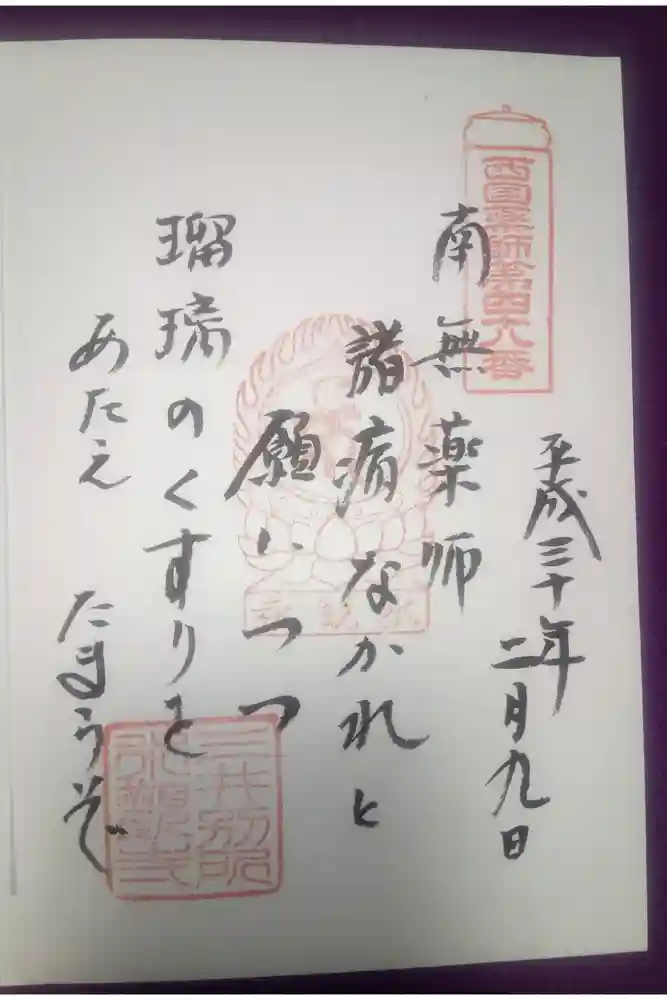 西国薬師第四十八番
平成三十年
二月九日
南無薬師
諸病なかれと
願いつつ
瑠璃のくすりを
あたえ たまうぞ
三井別所